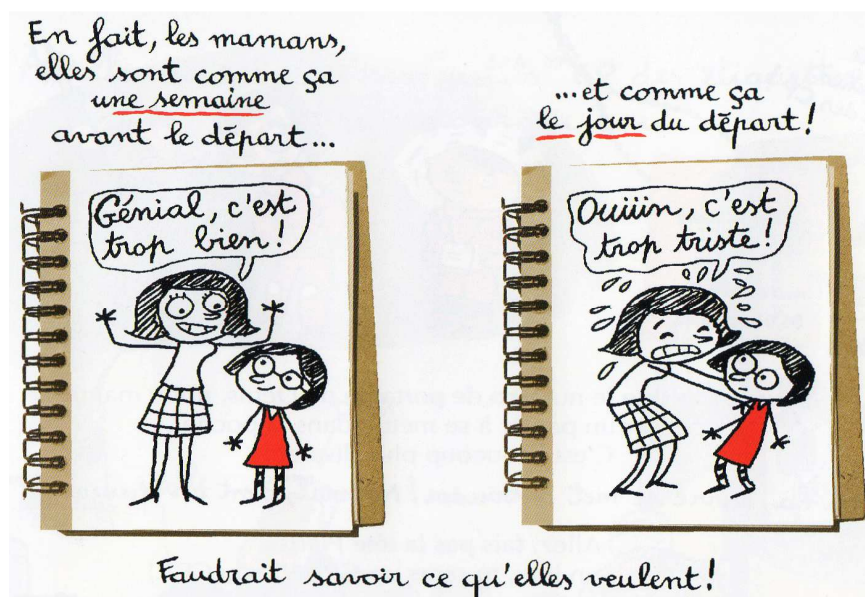 En fait, les mamans,
elles sont comme ça
une semaine
avant le départ...
Génial, c'est
trop bien !
...et comme ça
le jour du départ !
Ouiiin, c'est
trop triste !
Faudrait savoir ce qu'elles veulent !